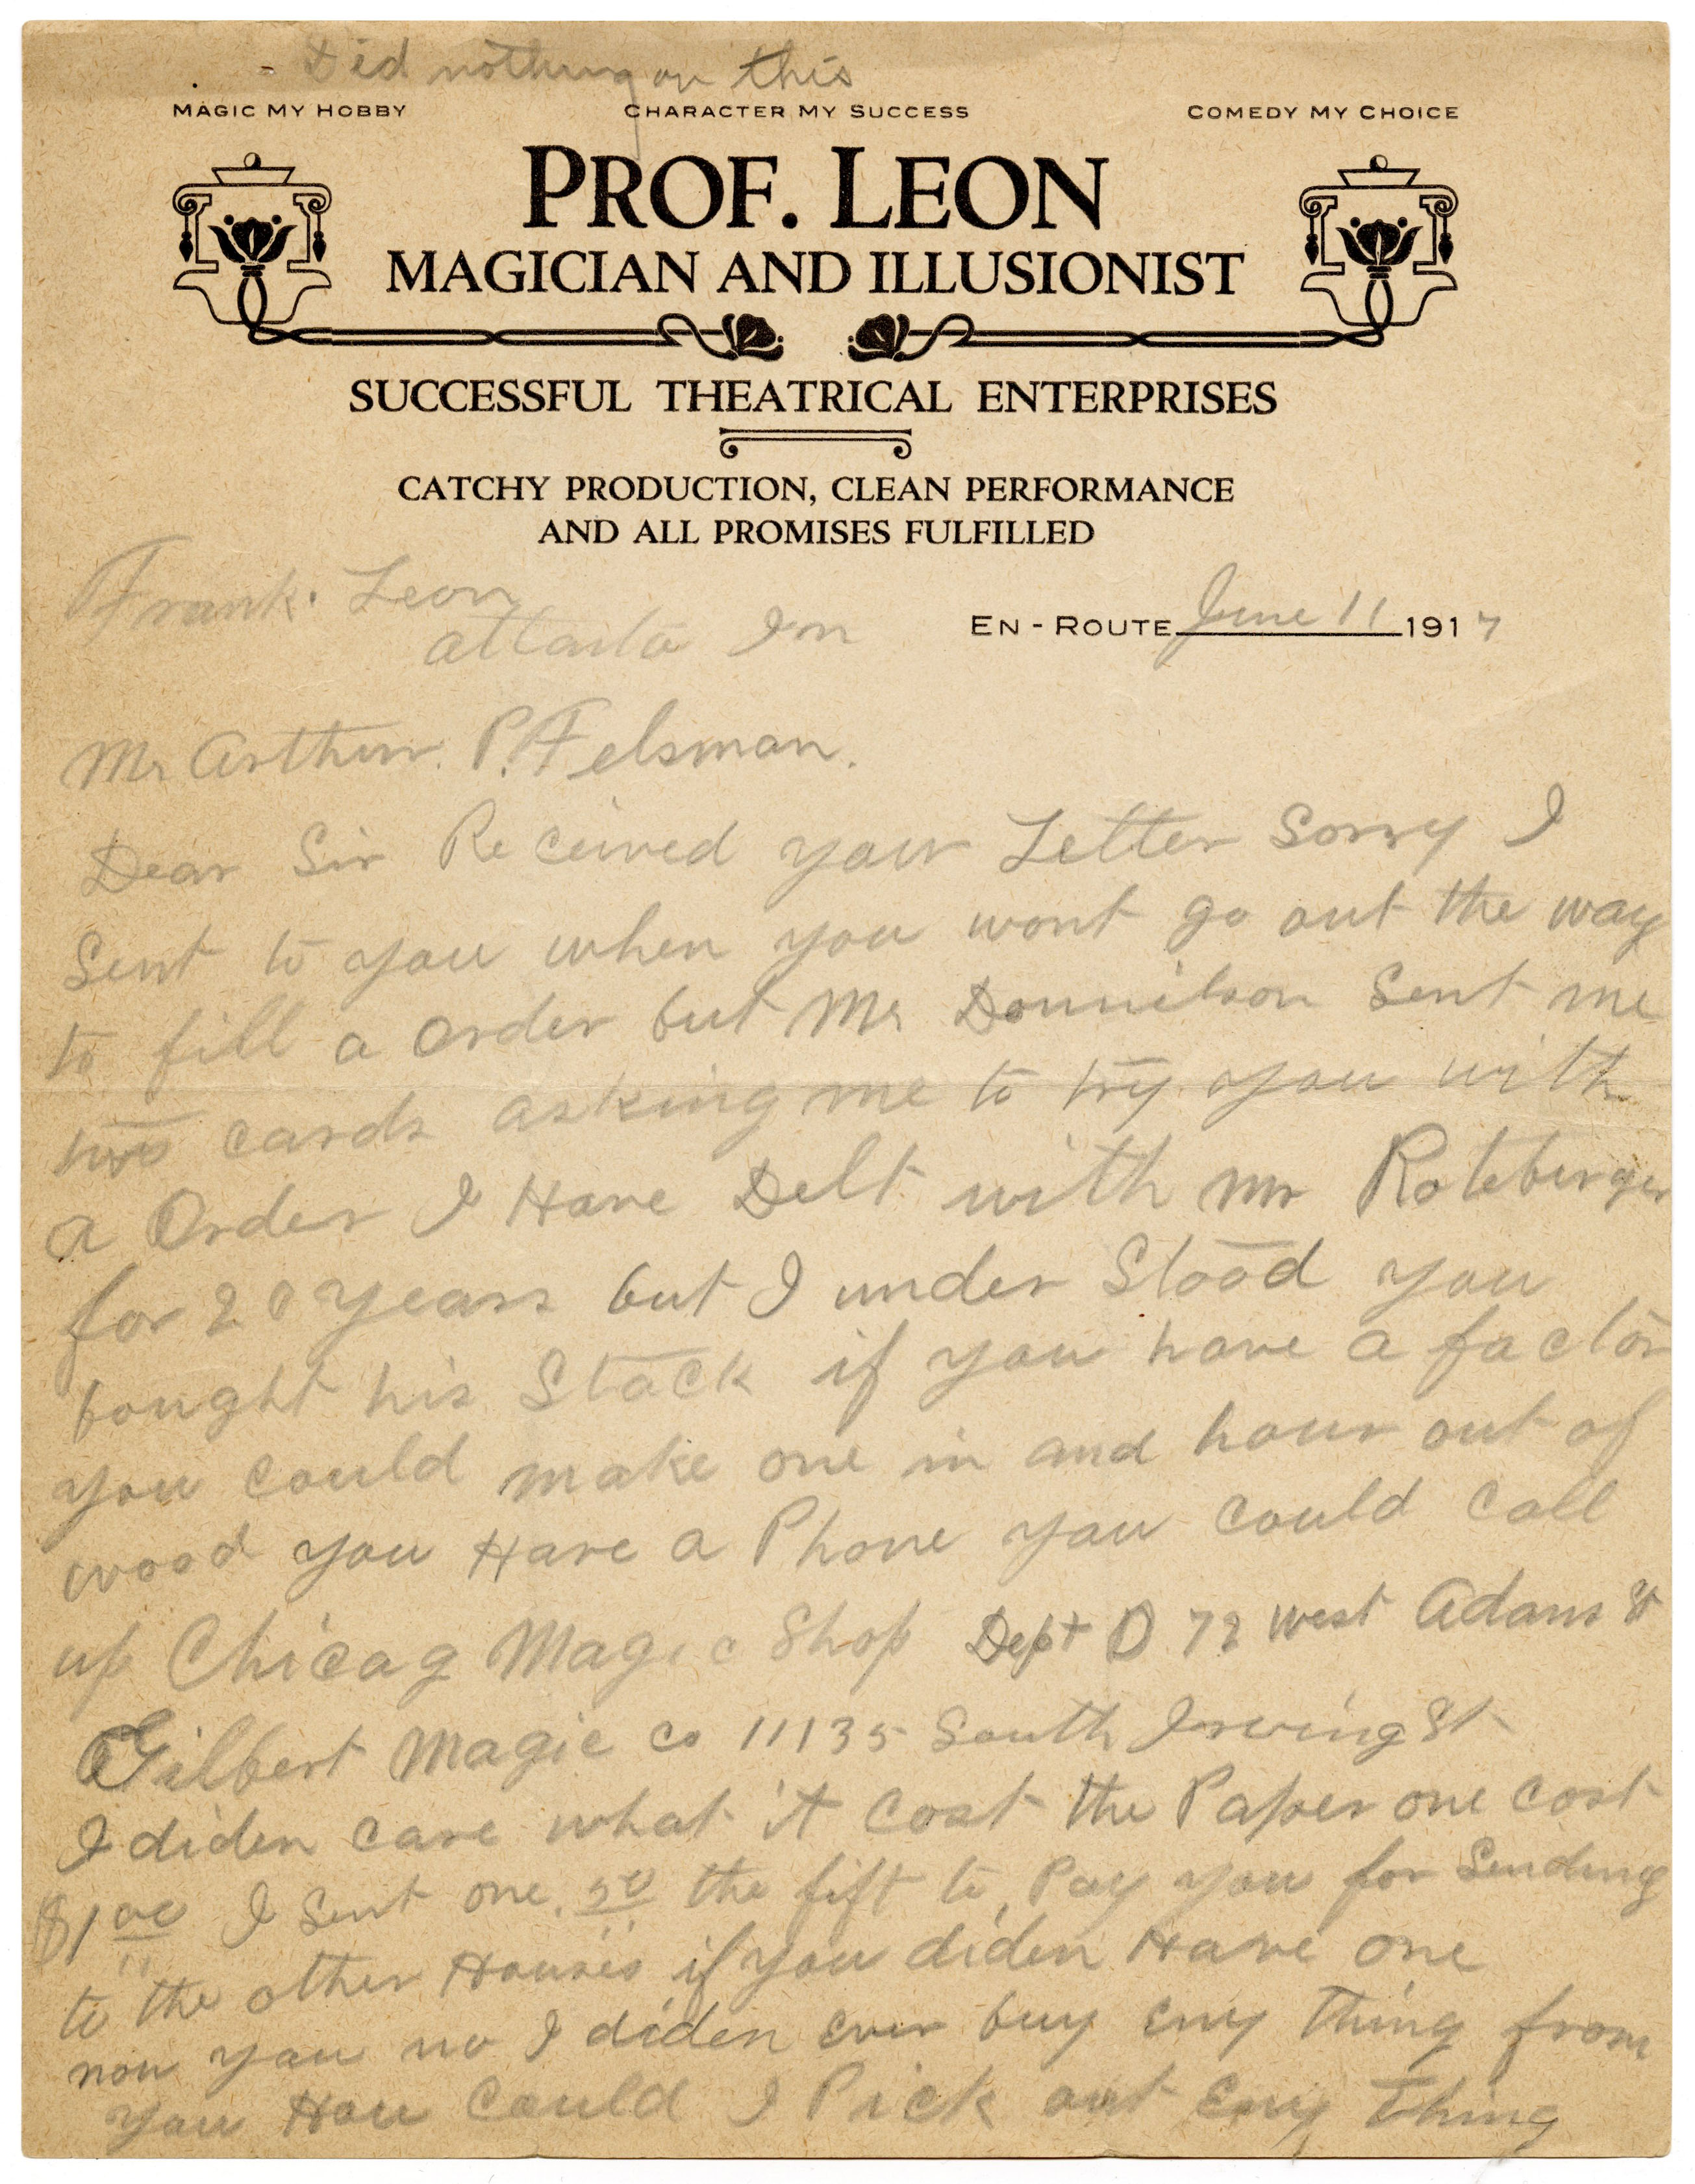 - Did nothing on this
MAGIC MY HOBBY CHARACTER MY SUCCESS COMEDY MY CHOICE
PROF. LEON
MAGICIAN AND ILLUSIONIST
SUCCESSFUL THEATRICAL ENTERPRISES
CATCHY PRODUCTION, CLEAN PERFORMANCE
AND ALL PROMISES FULFILLED
Frank. Leon
EN-ROUTE June 11 1917
Mr Arthur. P. Felsman.
Dear Sir Received your Letter Sorry I
Sent to you when you wont go out the way
to fill a order but Mr Donnilson Sent me
two cards asking me to try you with
a Order I Have Delt with Mr Roteberger
for 20 years but I under Stood you
bought his Stock if you have a factor
you could make one in and hour out of
wood you Have a Phone you could call
up Chicag Magic Shop Dept D 72 West Adams St
Gilbert Magic Co 11135 South Irving St
I diden care what it cost the Paper one cost
$1.00 I Sent one .50 the fift to Pay you for Sending
to the other Houses if you diden Have one
now you no I diden ever buy eny thing from
you How Could I Pick out Eny thing